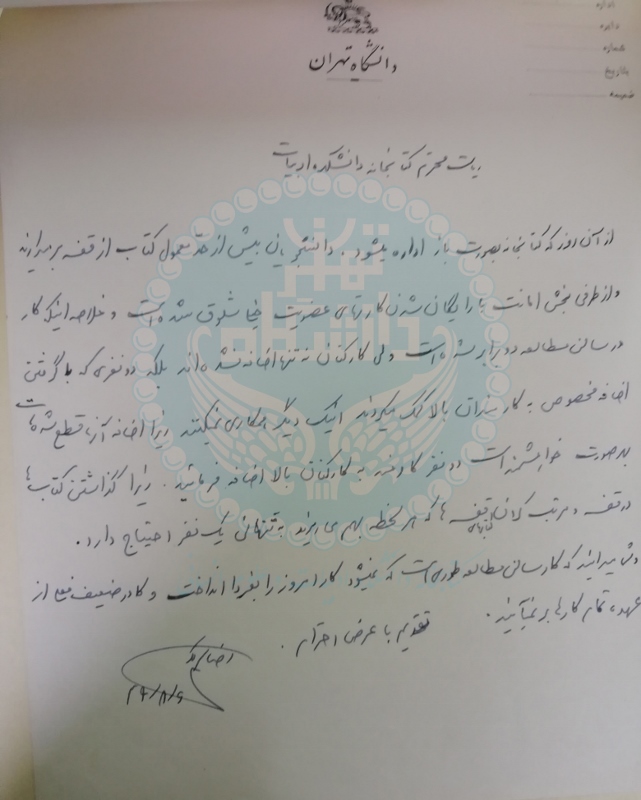 اداره
دایره
شماره
بتاریخ
ضمیمه
دانشگاه تهران
ریاست محترم کتابخانه دانشکده ادبیات
از آن روز که کتابخانه بصورت باز اداره میشود، دانشجویان بیش از حد معمول کتاب از قفسه برمیدارند
و از طرفی بخش امانت با رایگان شدن کارتهای عضویت خیلی شلوغ شده است و خلاصه اینکه کار
در سالن مطالعه دو برابر شده است ولی کارکنان نه تنها اضافه نشده اند بلکه دو نفری که با گرفتن
اضافه مخصوص به کارمندان بالا کمک میکردند اینک دیگر همکاری نمیکنند زیرا اضافه آنها قطع شده است
بهر صورت خواهشمند است دو نفر کارمند به کارکنان بالا اضافه فرمائید. زیرا گذاشتن کتاب ها
در قفسه و مرتب کردن کتابهای قفسه ها که هر لحظه بهم می ریزد به تنهائی یک نفر احتیاج دارد.
میدانید که کار سالن مطالعه طوری است که نمیشود کار امروز را بفردا انداخت و کادر ضعیف فعلی از
عهده تمام کارها بر نمیآیند.
تقدیم با عرض احترام.